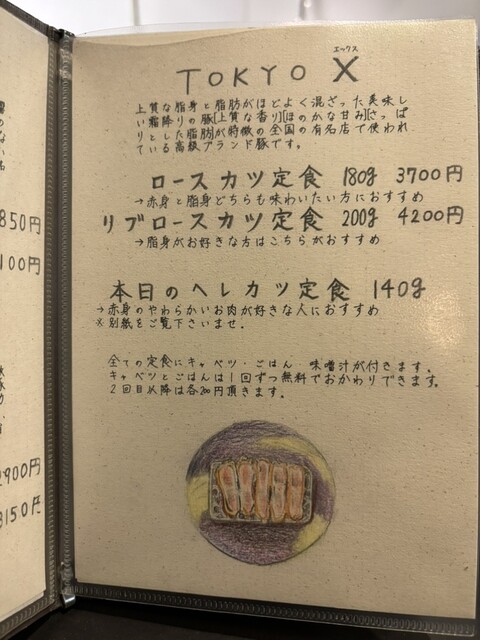 エックス
TOKYO X
上質な脂身と脂肪がほどよく混ざった美味し
い霜降りの豚[上質な香り][ほのかな甘み][さっぱ
りとした脂肪]が特徴の全国の有名店で使われ
ている高級ブランド豚です。
ロースカツ定食 180g 3700円
→赤身と脂身どちらも味わいたい方におすすめ
リブロースカツ定食 200g 4200円
→脂身がお好きな方はこちらがおすすめ
本日のヘレカツ定食 140g
→赤身のやわらかいお肉が好きな人におすすめ
※別紙をご覧下さいませ。
全ての定食にキャベツ・ごはん 味噌汁が付きます。
キャベツとごはんは1回ずつ無料でおかわりできます。
2回目以降は各200円頂きます。
850円
100円
2900円
3150円